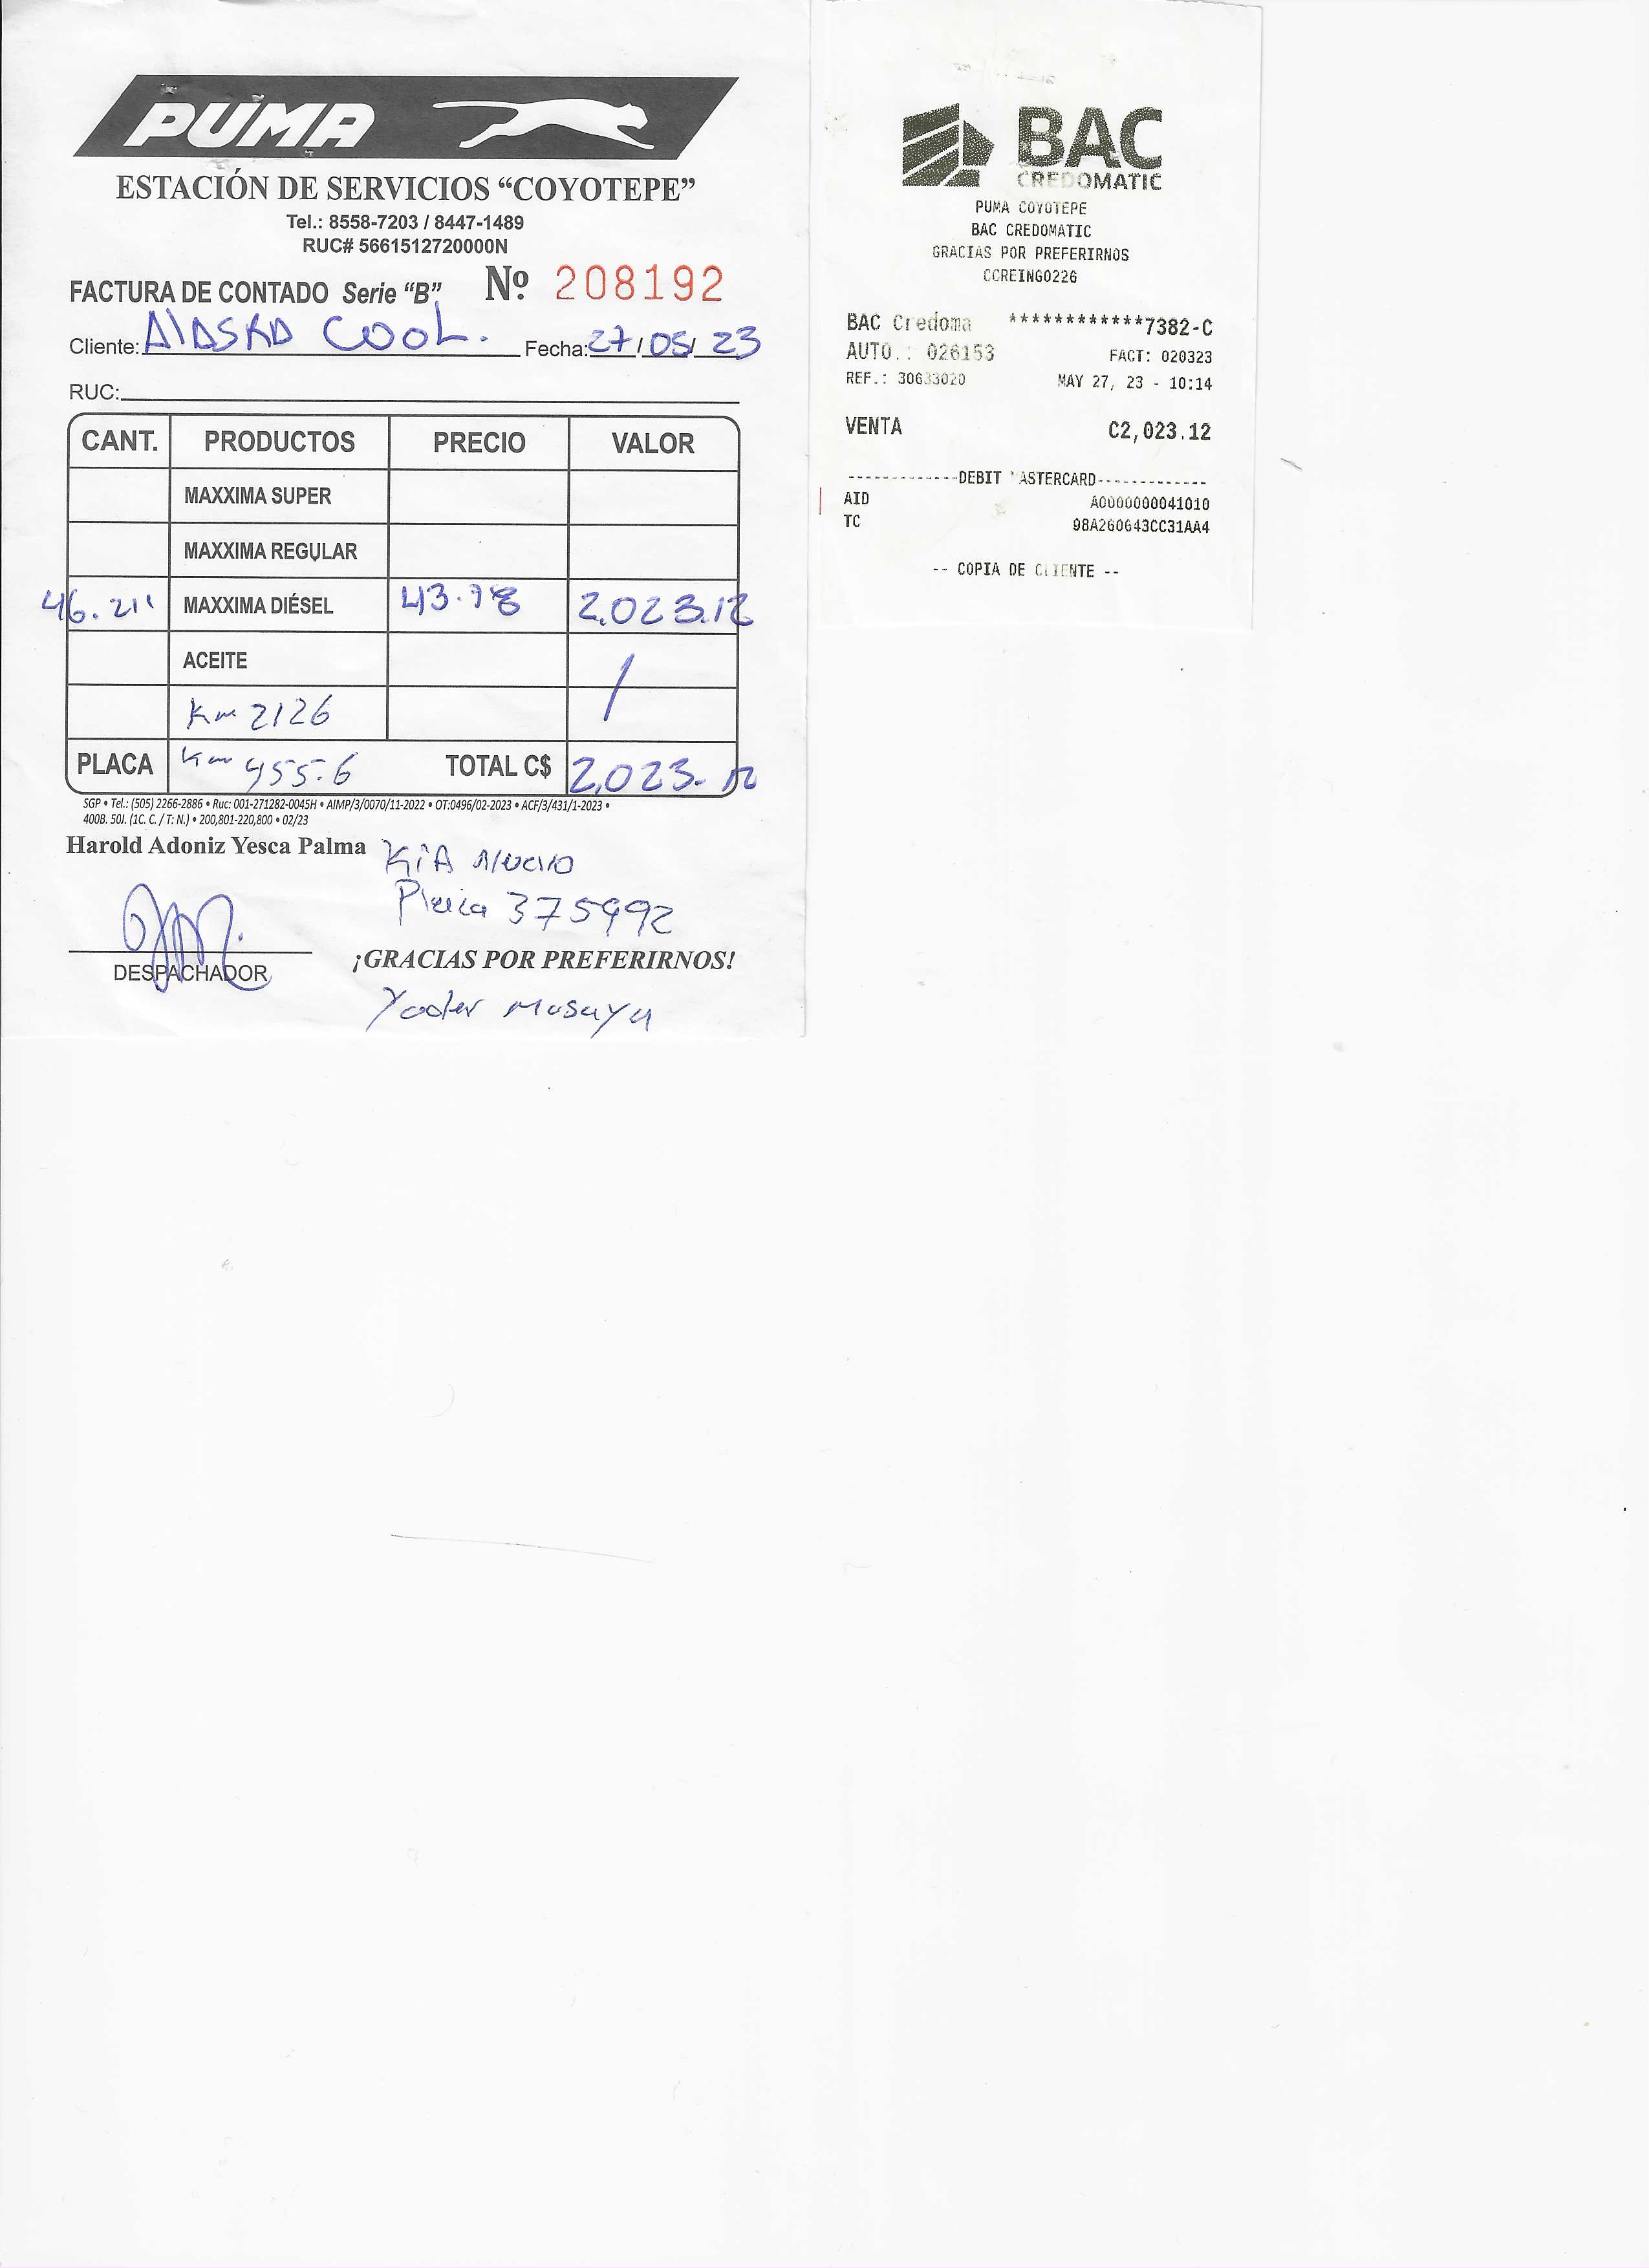 PUMA
ESTACIÓN DE SERVICIOS “COYOTEPE”
Tel.: 8558-7203 / 8447-1489
RUC# 5661512720000N
FACTURA DE CONTADO Serie “B” Nº 208192
Cliente: Alaska Cool. Fecha: 27/05/23
RUC:
CANT. PRODUCTOS PRECIO VALOR
MAXXIMA SUPER
MAXXIMA REGULAR
46.211 MAXXIMA DIÉSEL 43.78 2,023.12
ACEITE
Km 2126
PLACA Km 455.6 TOTAL C$ 2,023.12
SGP • Tel.: (505) 2266-2886 • Ruc: 001-271282-0045H • AIMP/3/0070/11-2022 • OT:0496/02-2023 • ACF/3/431/1-2023 •
400B. 50J. (1C. C. / T: N.) • 200,801-220,800 • 02/23
Harold Adoniz Yesca Palma
KIA Nuevo
Placa 375992
DESPACHADOR
¡GRACIAS POR PREFERIRNOS!
Yader Masaya
BAC
CREDOMATIC
PUMA COYOTEPE
BAC CREDOMATIC
GRACIAS POR PREFERIRNOS
CCREING0226
BAC Credoma ************7382-C
AUTO.: 026153 FACT: 020323
REF.: 30633020 MAY 27, 23 - 10:14
VENTA C2,023.12
------------DEBIT 'ASTERCARD-------------
AID A0000000041010
TC 98A260643CC31AA4
-- COPIA DE CLIENTE --